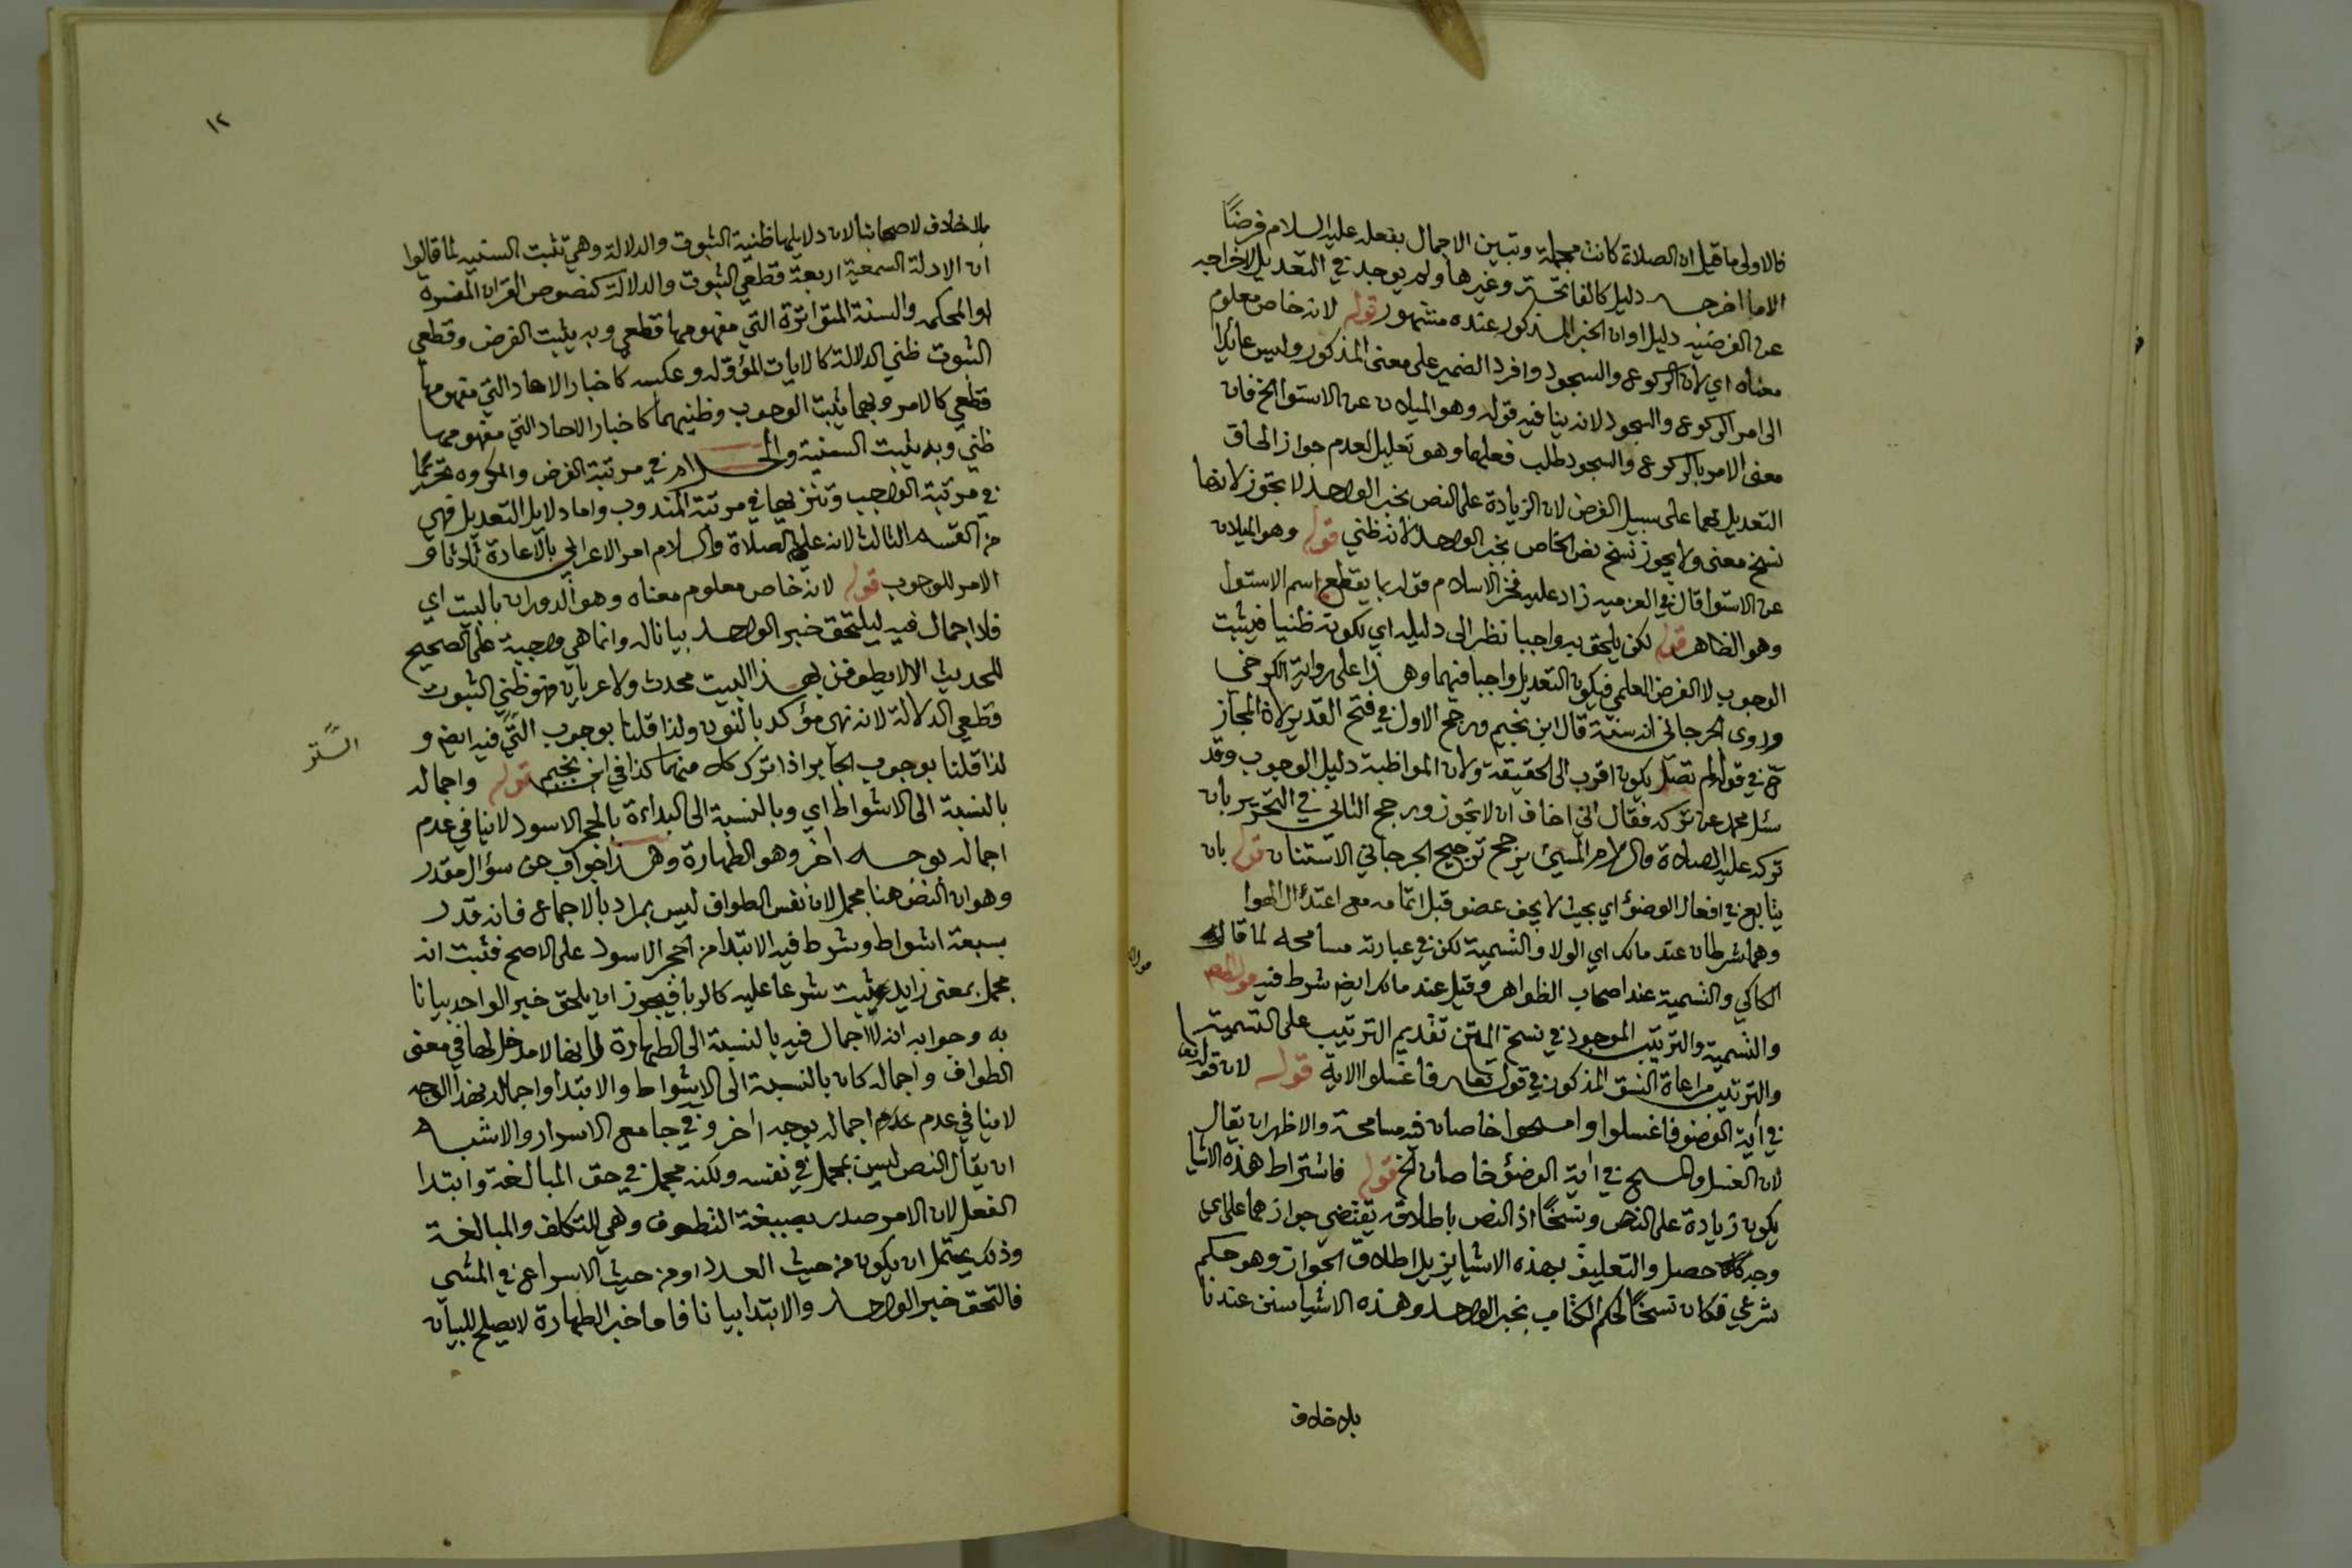 فالاولى ما قيل ان الصلاة كانت مجملة وتبين الاجمال بفعله عليه السلام فرضًا
الا ما اخرجه دليل كالفاتحة وغيرها ولم يوجد في التعديل لاخراجه
عن الفرضيه دليل اوان الخبر المذكور عنده مشهور قوله لانه خاص معلوم
معناه اي لان الركوع والسجود وافرد الضمير على معنى المذكور وليس عائدا
الى امر الركوع والسجود لانه ينافيه قوله وهو الميلان عن الاستوا الخ فان
معنى الامر بالركوع والسجود طلب فعلها وهو تعليل لعدم جواز الحاق
التعديل بهما على سبيل الفرض لان الزيادة على النص بخبر الواحد لا تجوز لانها
نسخ معنى ولا يجوز نسخ نص الخاص بخبر الواحد لانه ظني قوله وهو الميلان
عن الاستوا قال في العزميه زاد عليه فخر الاسلام قوله بما يقطع اسم الاستوا
وهو الظاهر قوله لكن يلحق به واجبا نظرا الى دليله اي بكونه ظنيا فيثبت
الوجوب لا الفرض العلمي فيكون التعديل واجبا فيهما وهذا على رواية الكرخي
وروى الجرجاني انه سنة قال ابن نجيم ورجح الاول في فتح القدير لان المجاز
ح في قوله لم تصل يكون اقرب الى الحقيقة ولان المواظبة دليل الوجوب وقد
سئل محمد عن تركه فقال اني اخاف ان لا تجوز ورجح الثاني في التحرير بان
تركه عليه الصلاة والسلام المسيئ يرجح ترجيح الجرجاني الاستنان قوله بان
يتابع في افعال الوضؤ اي بحيث لا يجف عضو قبل اتمامه مع اعتدال الهوا
وهما شرطان عند مالك اي الولا والتسمية لكن في عبارته مسامحه لما قاله
الكاكي والتسمية عند اصحاب الظواهر وقيل عند مالك ايضا شرط فيه
والتسمية والترتيب الموجود في نسخ المتن تقديم الترتيب على التسمية
والترتيب مراعاة النسق المذكور في قوله تعالى فاغسلوا الاية قوله لان قوله تعا
في اية الوضو فاغسلوا وامسحوا خاصان فيه مسامحة والاظهر ان يقال
لان الغسل والمسح في اية الوضؤ خاصان الخ قوله فاشتراط هذه الاشيا
يكون زيادة على النص ونسخًا اذ النص باطلاقه يقتضي جوازهما على اي
وجه كان حصل والتعليق بهذه الاشيا يزيل اطلاق الجواز وهو حكم
شرعي فكان نسخًا لحكم الكتاب بخبر الواحد وهذه الاشيا سنن عندنا
بلا خلاف
١٢
بلا خلاف لاصحابنا لان دلايلها ظنية الثبوت والدلالة وهي تثبت السنيه لما قالوا
ان الادلة السمعية اربعة قطعي الثبوت والدلالة كنصوص القران المفسرة
او المحكمه والسنة المتواترة التي مفهومها قطعي وبه يثبت الفرض وقطعي
الثبوت ظني الدلالة كالايات المؤوله وعكسه كاخبار الاحاد التي مفهومها
قطعي كالامر وبهما يثبت الوجوب وظنيهما كاخبار الاحاد التي مفهومها
ظني وبه يثبت السنية والحرام في مرتبة الفرض والمكروه تحريما
في مرتبة الواجب وتنزيها في مرتبة المندوب واما دلايل التعديل فهي
من القسم الثالث لانه عليه الصلاة والسلام امر الاعرابي بالاعادة ثلاثا و
الامر للوجوب قوله لانه خاص معلوم معناه وهو الدوران بالبيت اي
فلا اجمال فيه ليلتحق خبر الواحد بيانا له وانما هي واجبة على الصحيح
للحديث الا لا يطوفن بهذا البيت محدث ولا عريان فهو ظني الثبوت
قطعي الدلالة لانه نهى مؤكد بالنون ولذا قلنا بوجوب فيه ايضا و
الستر
لذا قلنا بوجوب الجابر اذا ترك كل منهما كذا في ابن نجيم قوله واجماله
بالنسبة الى الاشواط اي وبالنسبة الى البداءة بالحجر الاسود لا ينافي عدم
اجماله بوجه اخر وهو الطهارة وهذا جواب عن سؤال مقدر
وهو ان النص هنا مجمل لان نفس الطواف ليس بمراد بالاجماع فانه قدر
بسبعة اشواط وشرط فيه الابتدا من الحجر الاسود على الاصح فثبت انه
مجمل بمعنى زايد يثبت شرعا عليه كالربا فيجوز ان يلحق خبر الواحد بيانا
به وجوابه انه لا اجمال فيه بالنسبة الى الطهارة لانها لا مدخل لها في معنى
الطواف واجماله كان بالنسبة الى الاشواط والابتدا واجماله بهذا الوجه
لا ينافي عدم عدم اجماله بوجه اخر وفي جامع الاسرار والاشبه
ان يقال النص ليس بمجمل في نفسه ولكنه مجمل في حق المبالغة وابتدا
الفعل لان الامر صدر بصيغة التطوف وهي للتكلف والمبالغة
وذلك يحتمل ان يكون من حيث العدد او من حيث الاسراع في المشي
فالتحق خبر الواحد والابتدا بيانا فاما خبر الطهارة لا يصلح للبيان